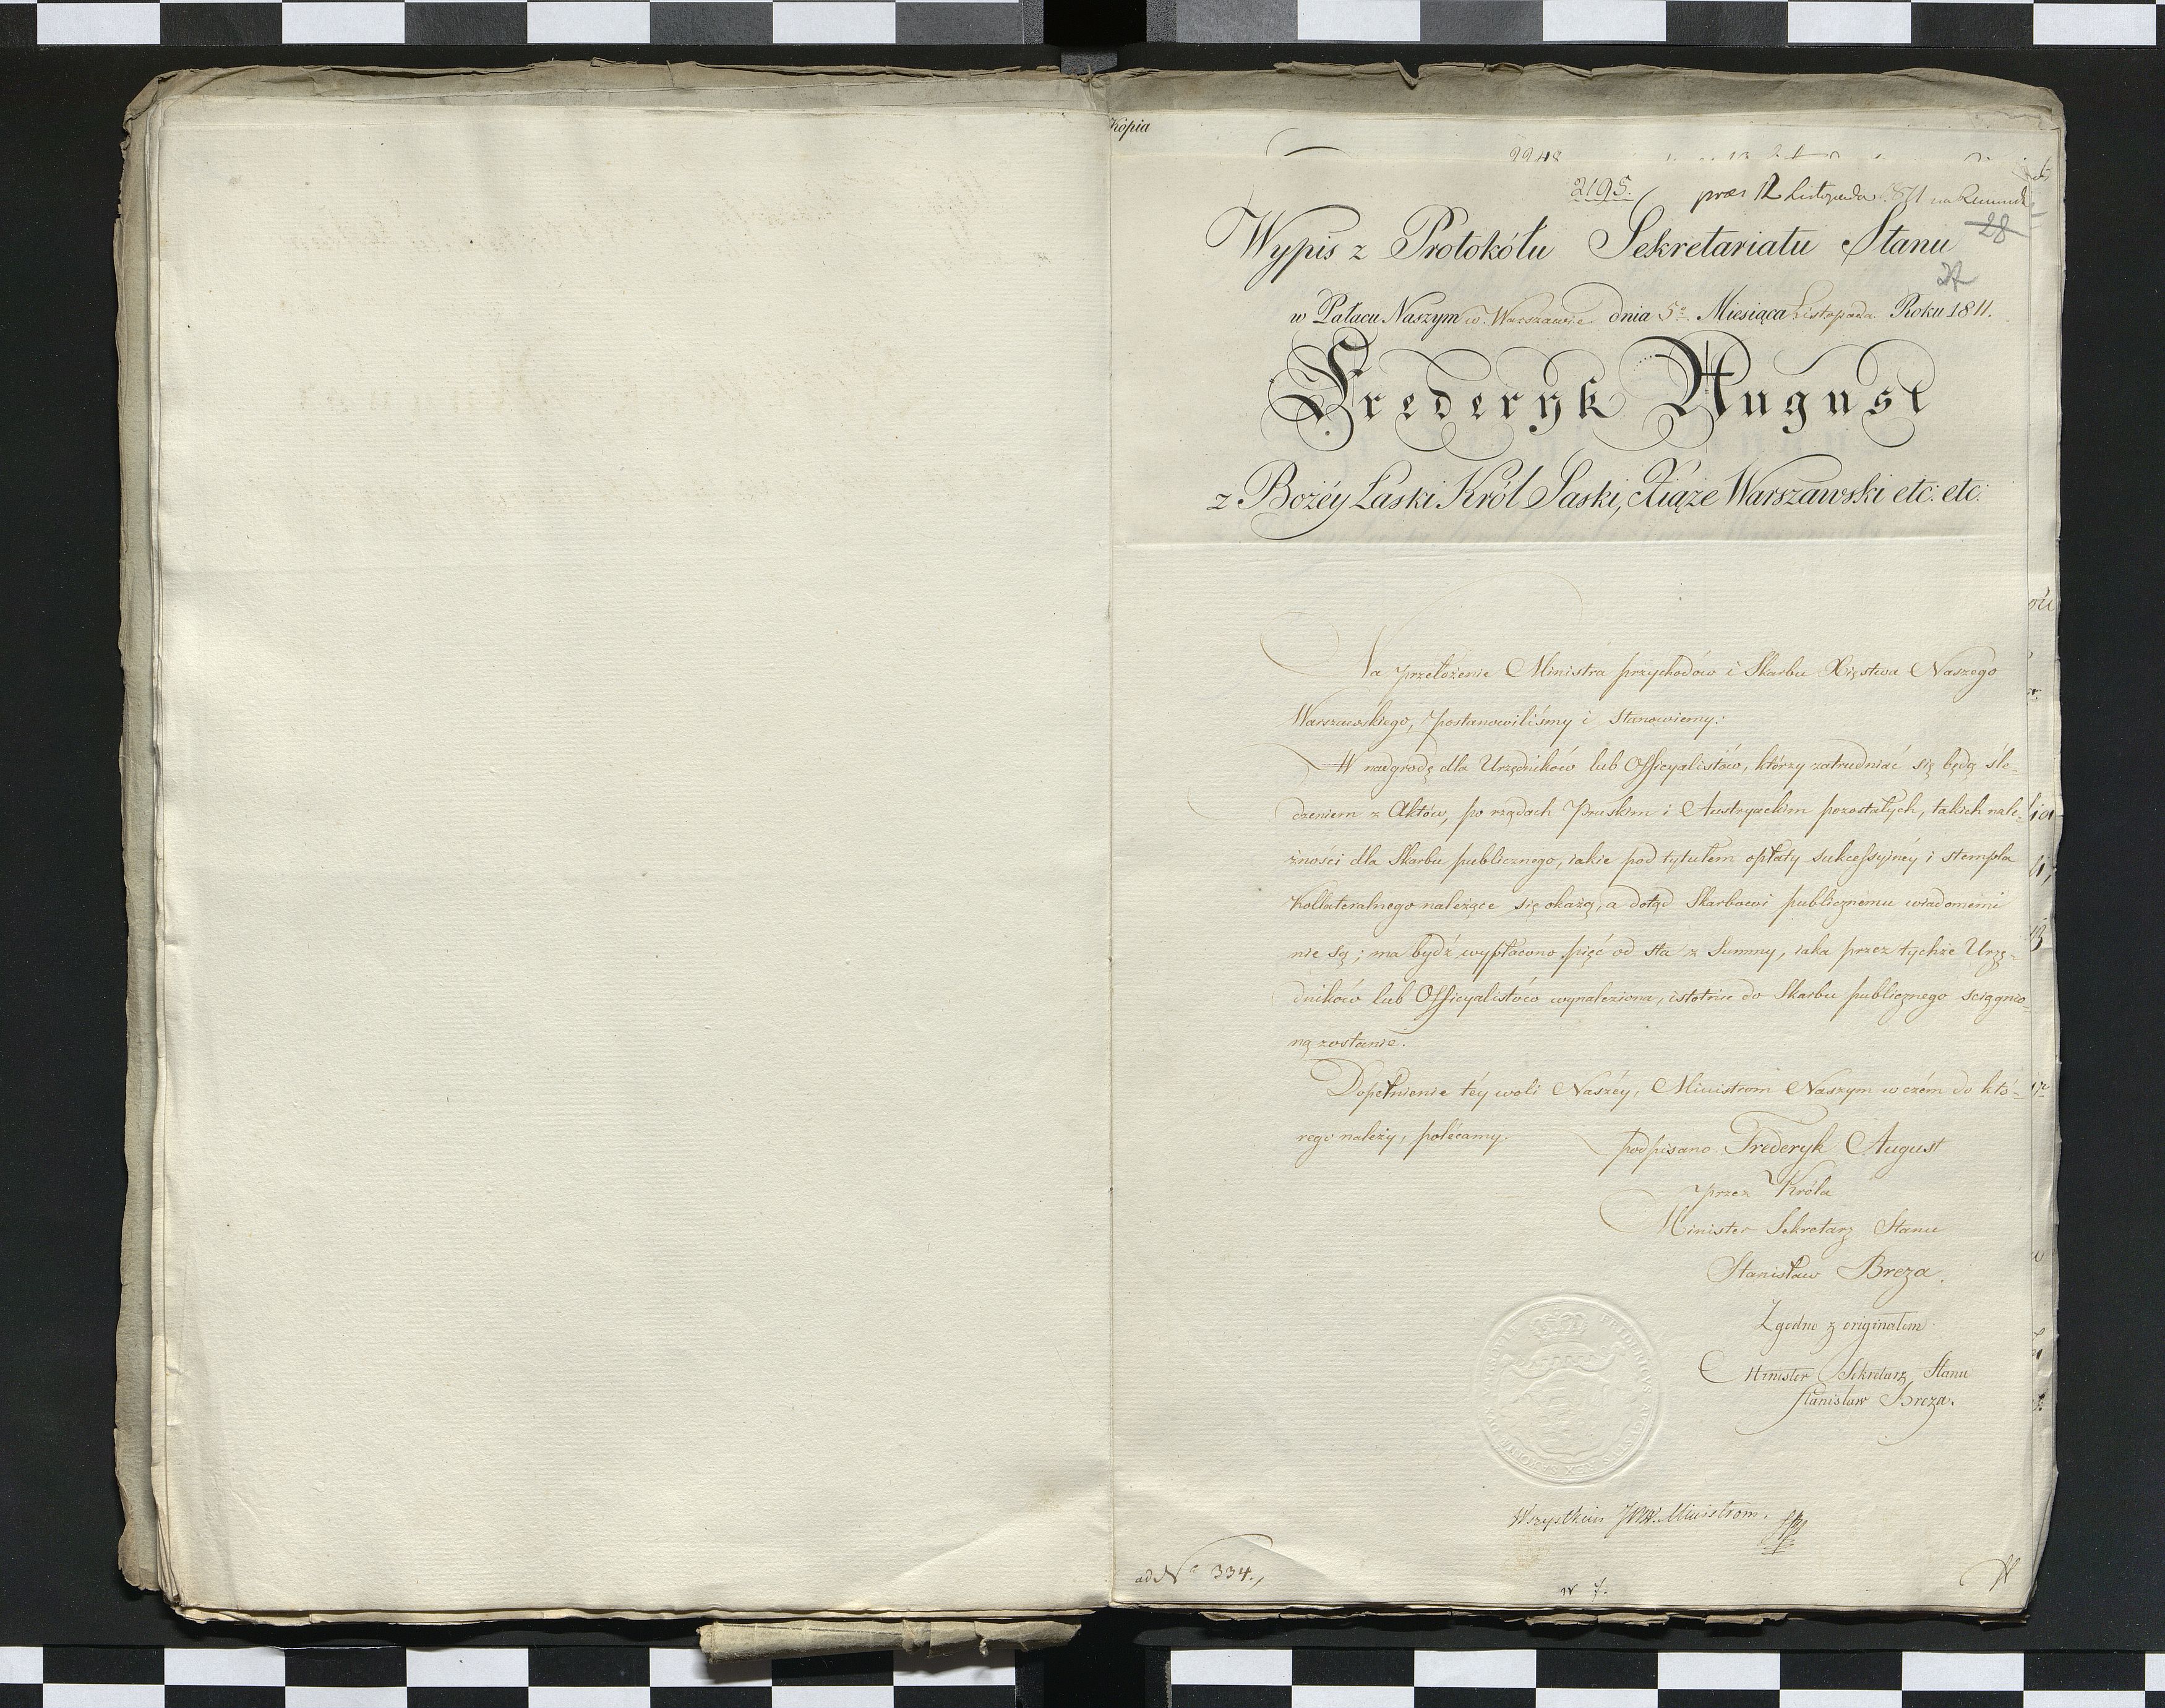 Kopia
2248
2195. præs 12 Listopada 1811
28
27
Wypis z Protokółu Sekretariatu Stanu
w Pałacu Naszym w Warszawie dnia 5º Miesiąca Listopada Roku 1811.
Frederyk August
z Bożéy Łaski Król Saski, Xiąże Warszawski etc: etc:
Na przełożenie Ministra przychodów i Skarbu Xięstwa Naszego
Warszawskiego, postanowiliśmy i stanowiemy:
W nadgrodę dla Urzędników lub Officyalistów, którzy zatrudniać się będą śle-
dzeniem z Aktów, po rządach Pruskim i Austryackim pozostałych, takich nale-
żności dla Skarbu publicznego, iakie pod tytułem opłaty sukcessyinéy i stempla
Kollateralnego należące się okażą, a dotąd Skarbowi publicznemu wiadomemi
nie są; ma bydź wypłacono pięć od sta z Summy, iaka przez tychże Urzę-
dników lub Officyalistów wynaleziona, istotnie do Skarbu publicznego sciągnio-
ną zostanie.
Dopełnienie téy woli Naszéy, Ministrom Naszym w czém do któ-
rego należy, polécamy.
podpisano Frederyk August
przez Króla
Minister Sekretarz Stanu
Stanisław Breza.
Zgodno z originałem
Minister Sekretarz Stanu
Stanisław Breza.
Wszystkim JWW. Ministrom.
ad Nº 334.
w 7.